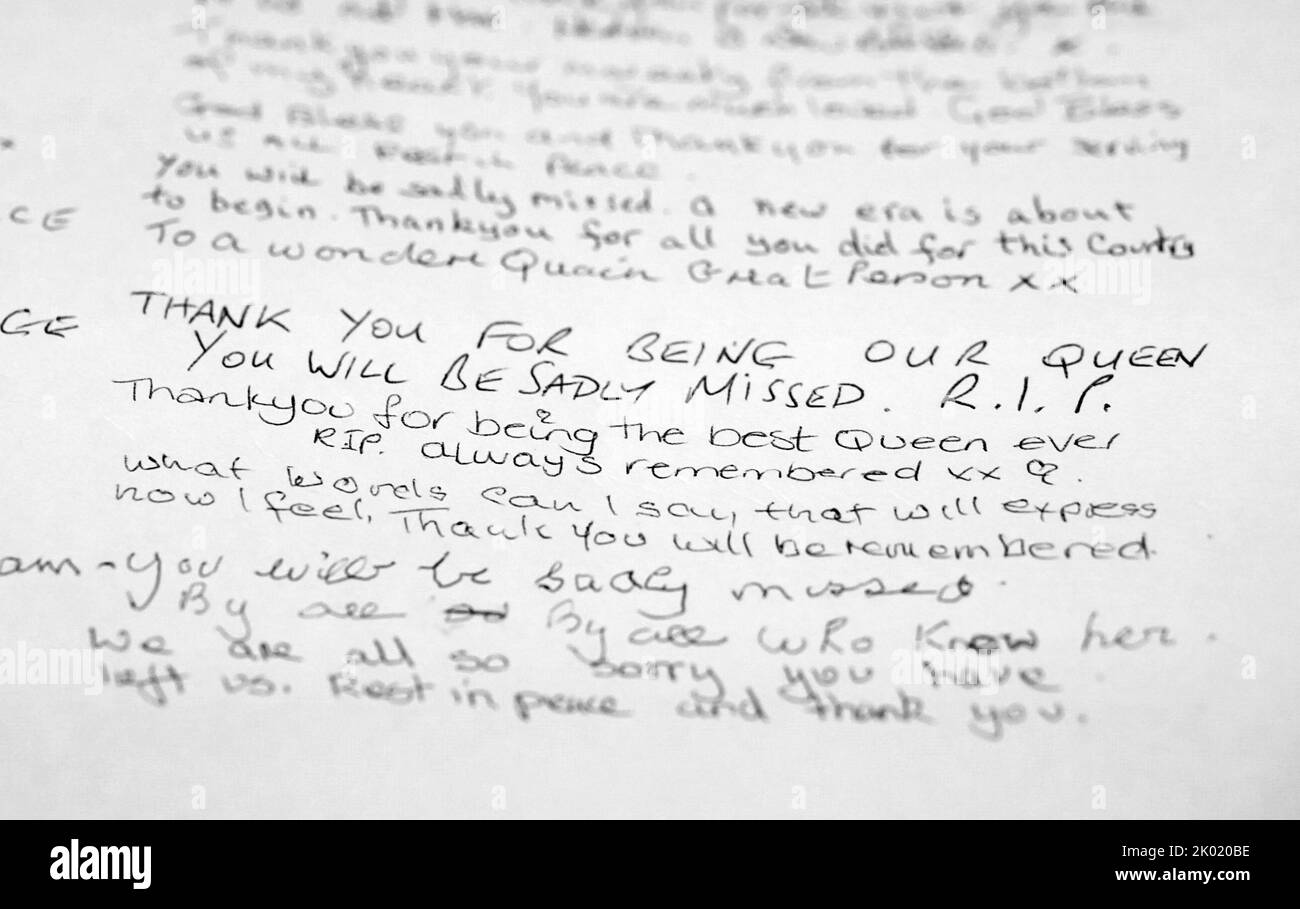 Thankyou your majesty from the bottom
of my heart. You are much loved God Bless
God Bless you and Thankyou for your serving
us all Rest in Peace.
You will be sadly missed. a new era is about
CE to begin. Thankyou for all you did for this Country
To a wondere Quain Great Person xx
GE THANK YOU FOR BEING OUR QUEEN
YOU WILL BE SADLY MISSED. R.I.P.
Thankyou for being the best Queen ever
RIP. always remembered xx
what words can I say, that will express
how I feel, Thank you will be remembered.
am - You will be sadly missed.
By all By all who knew her.
We are all so sorry you have
left us. Rest in peace and thank you.
alamy
Image ID: 2K020BE
www.alamy.com